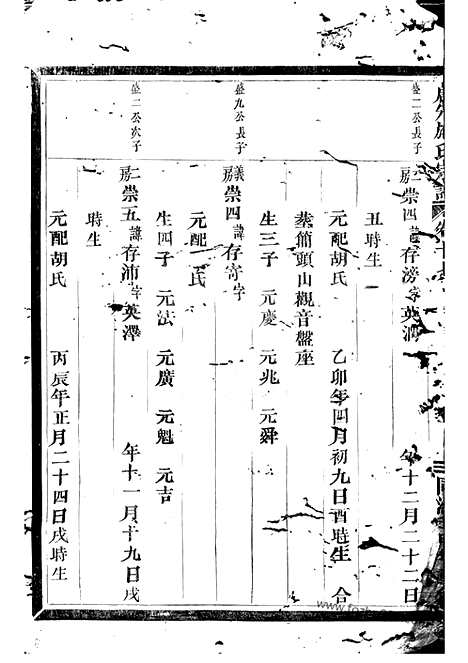 盛二公長子
二房崇四諱存滂字英 年十二月二十二日
丑時生
元配胡氏 乙卯年四月初九日酉時生 合
葬箭頭山觀音盤座
生三子 元慶 元兆 元舜
盛九公長子
義房崇四諱存寄字
元配 氏
生四子 元法 元廣 元魁 元吉
盛二公次子
二房崇五諱存沛字英澤 年十一月十九日戌
時生
元配胡氏 丙辰年正月二十四日戌時生